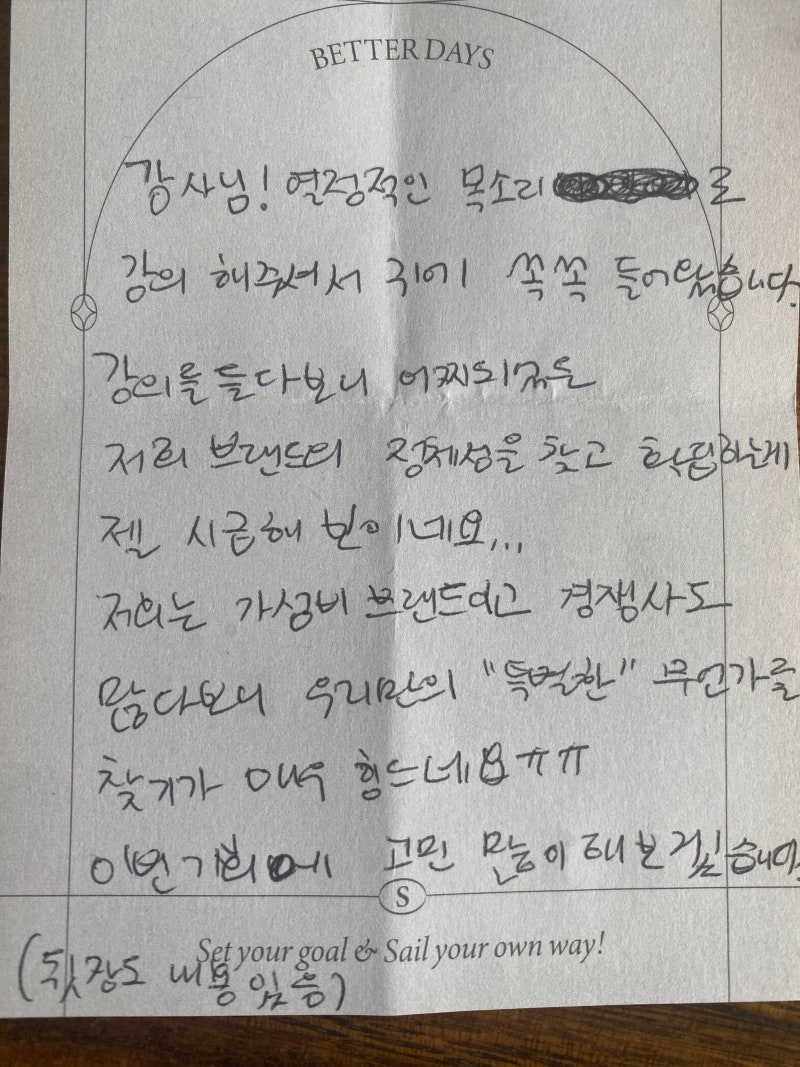 BETTER DAYS
강사님! 열정적인 목소리 로
강의 해주셔서 귀에 쏙쏙 들어왔습니다.
강의를 듣다보니 어찌되었든
저희 브랜드의 정체성을 찾고 확립하는게
젤 시급해 보이네요...
저희는 가성비 브랜드이고 경쟁사도
많다보니 우리만의 "특별한" 무언가를
찾기가 매우 힘드네요ㅠㅠ
이번기회에 고민 많이 해보겠습니다.
S
Set your goal & Sail your own way!
(뒷장도 내용있음)